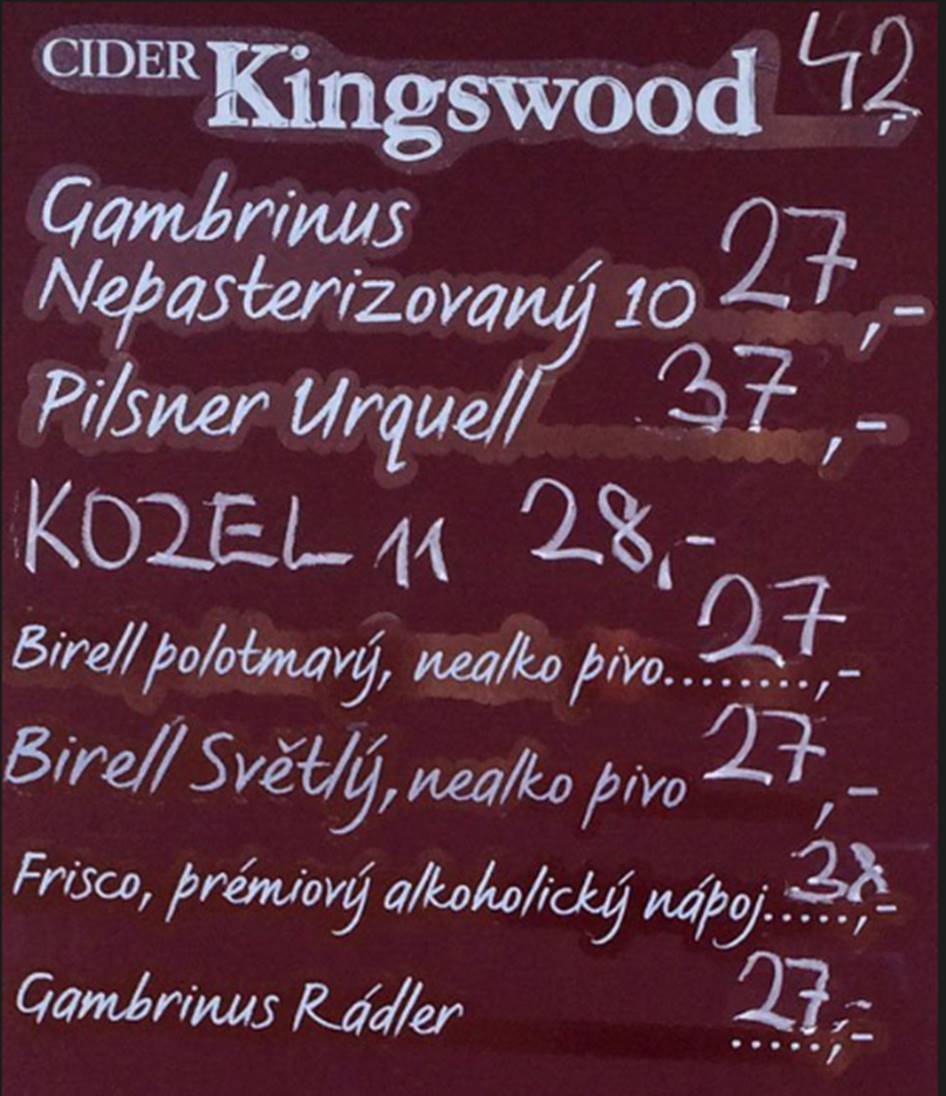 CIDER Kingswood 42,-
Gambrinus
Nepasterizovaný 10 27,-
Pilsner Urquell 37,-
KOZEL 11 28,-
Birell polotmavý, nealko pivo........,- 27
Birell Světlý, nealko pivo 27,-
Frisco, prémiový alkoholický nápoj.....,- 38
Gambrinus Rádler 27,-
.....,-